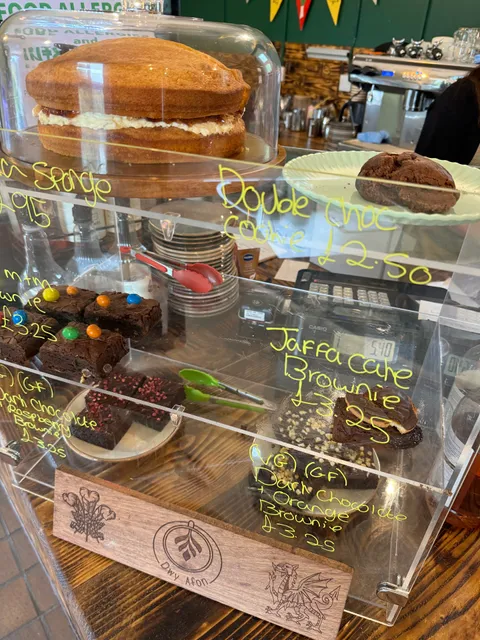 FOOD ALLERG
Sponge
Double choc
cookie £2.50
m+m
£3.25
Jaffa cake
Brownie
£3.25
CASIO
540
(GF)
Dark chocolate
Raspberry
Brownie
£3.25
(VG) (GF)
Dark chocolate
+ Orange
Brownie
£3.25
Dwy Afon